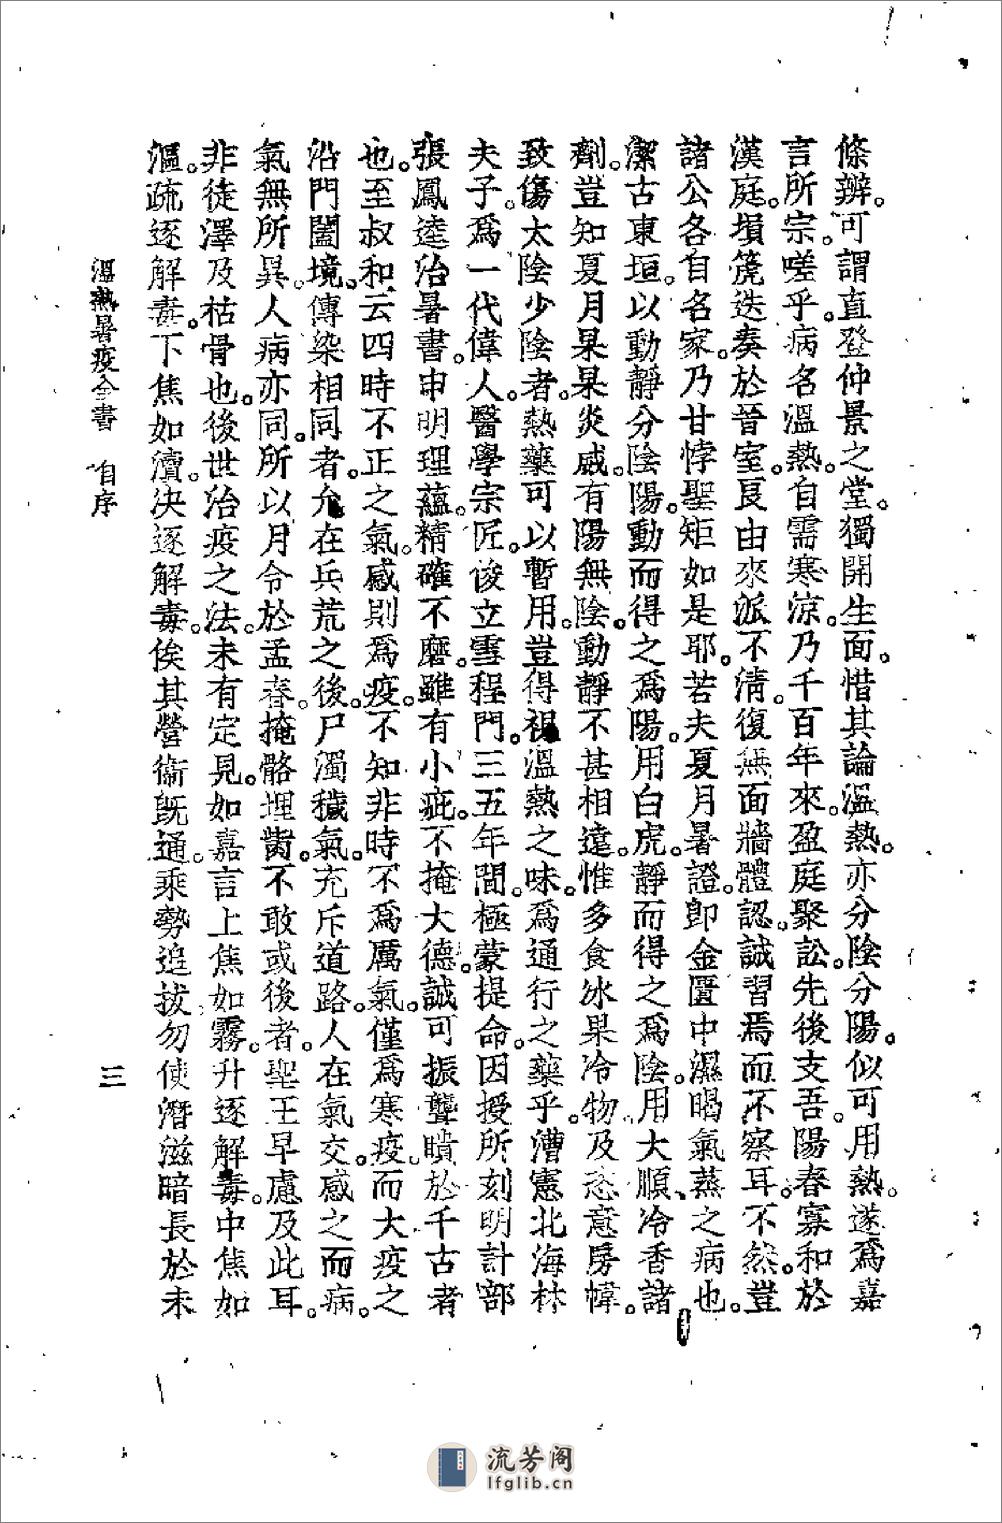 條辨。可謂直登仲景之堂。獨開生面。惜其論溫熱。亦分陰分陽。似可用熱。遂爲嘉
言所宗。嗟乎。病名溫熱。自需寒涼。乃千百年來。盈庭聚訟。先後支吾。陽春寡和於
漢庭。塤箎迭奏於晉室。良由來派不清。復無面牆體認。誠習焉而不察耳。不然。豈
諸公各自名家。乃甘悖聖矩如是耶。若夫夏月暑證。卽金匱中濕暍氣蒸之病也。
潔古東垣。以動靜分陰陽。動而得之爲陽。用白虎。靜而得之爲陰。用大順、冷香諸
劑。豈知夏月杲杲炎威。有陽無陰。動靜不甚相遠。惟多食冰果冷物及恣意房幃。
致傷太陰少陰者。熱藥可以暫用。豈得視溫熱之味。爲通行之藥乎。漕憲北海林
夫子。爲一代偉人。醫學宗匠。俊立雪程門。三五年間。極蒙提命。因授所刻明計部
張鳳逵治暑書。申明理蘊。精確不磨。雖有小疵。不掩大德。誠可振聾聵於千古者
也。至叔和云四時不正之氣。感則爲疫。不知非時不爲厲氣。僅爲寒疫。而大疫之
沿門闔境。傳染相同者。允在兵荒之後。尸濁穢氣。充斥道路。人在氣交。感之而病。
氣無所異。人病亦同。所以月令於孟春。掩骼埋胔。不敢或後者。聖王早慮及此耳。
非徒澤及枯骨也。後世治疫之法。未有定見。如嘉言上焦如霧。升逐解毒。中焦如
漚。疏逐解毒。下焦如瀆。決逐解毒。俟其營衞既通。乘勢追拔。勿使潛滋暗長於未
溫熱暑疫全書　自序
三
流芳阁
lfglib.cn